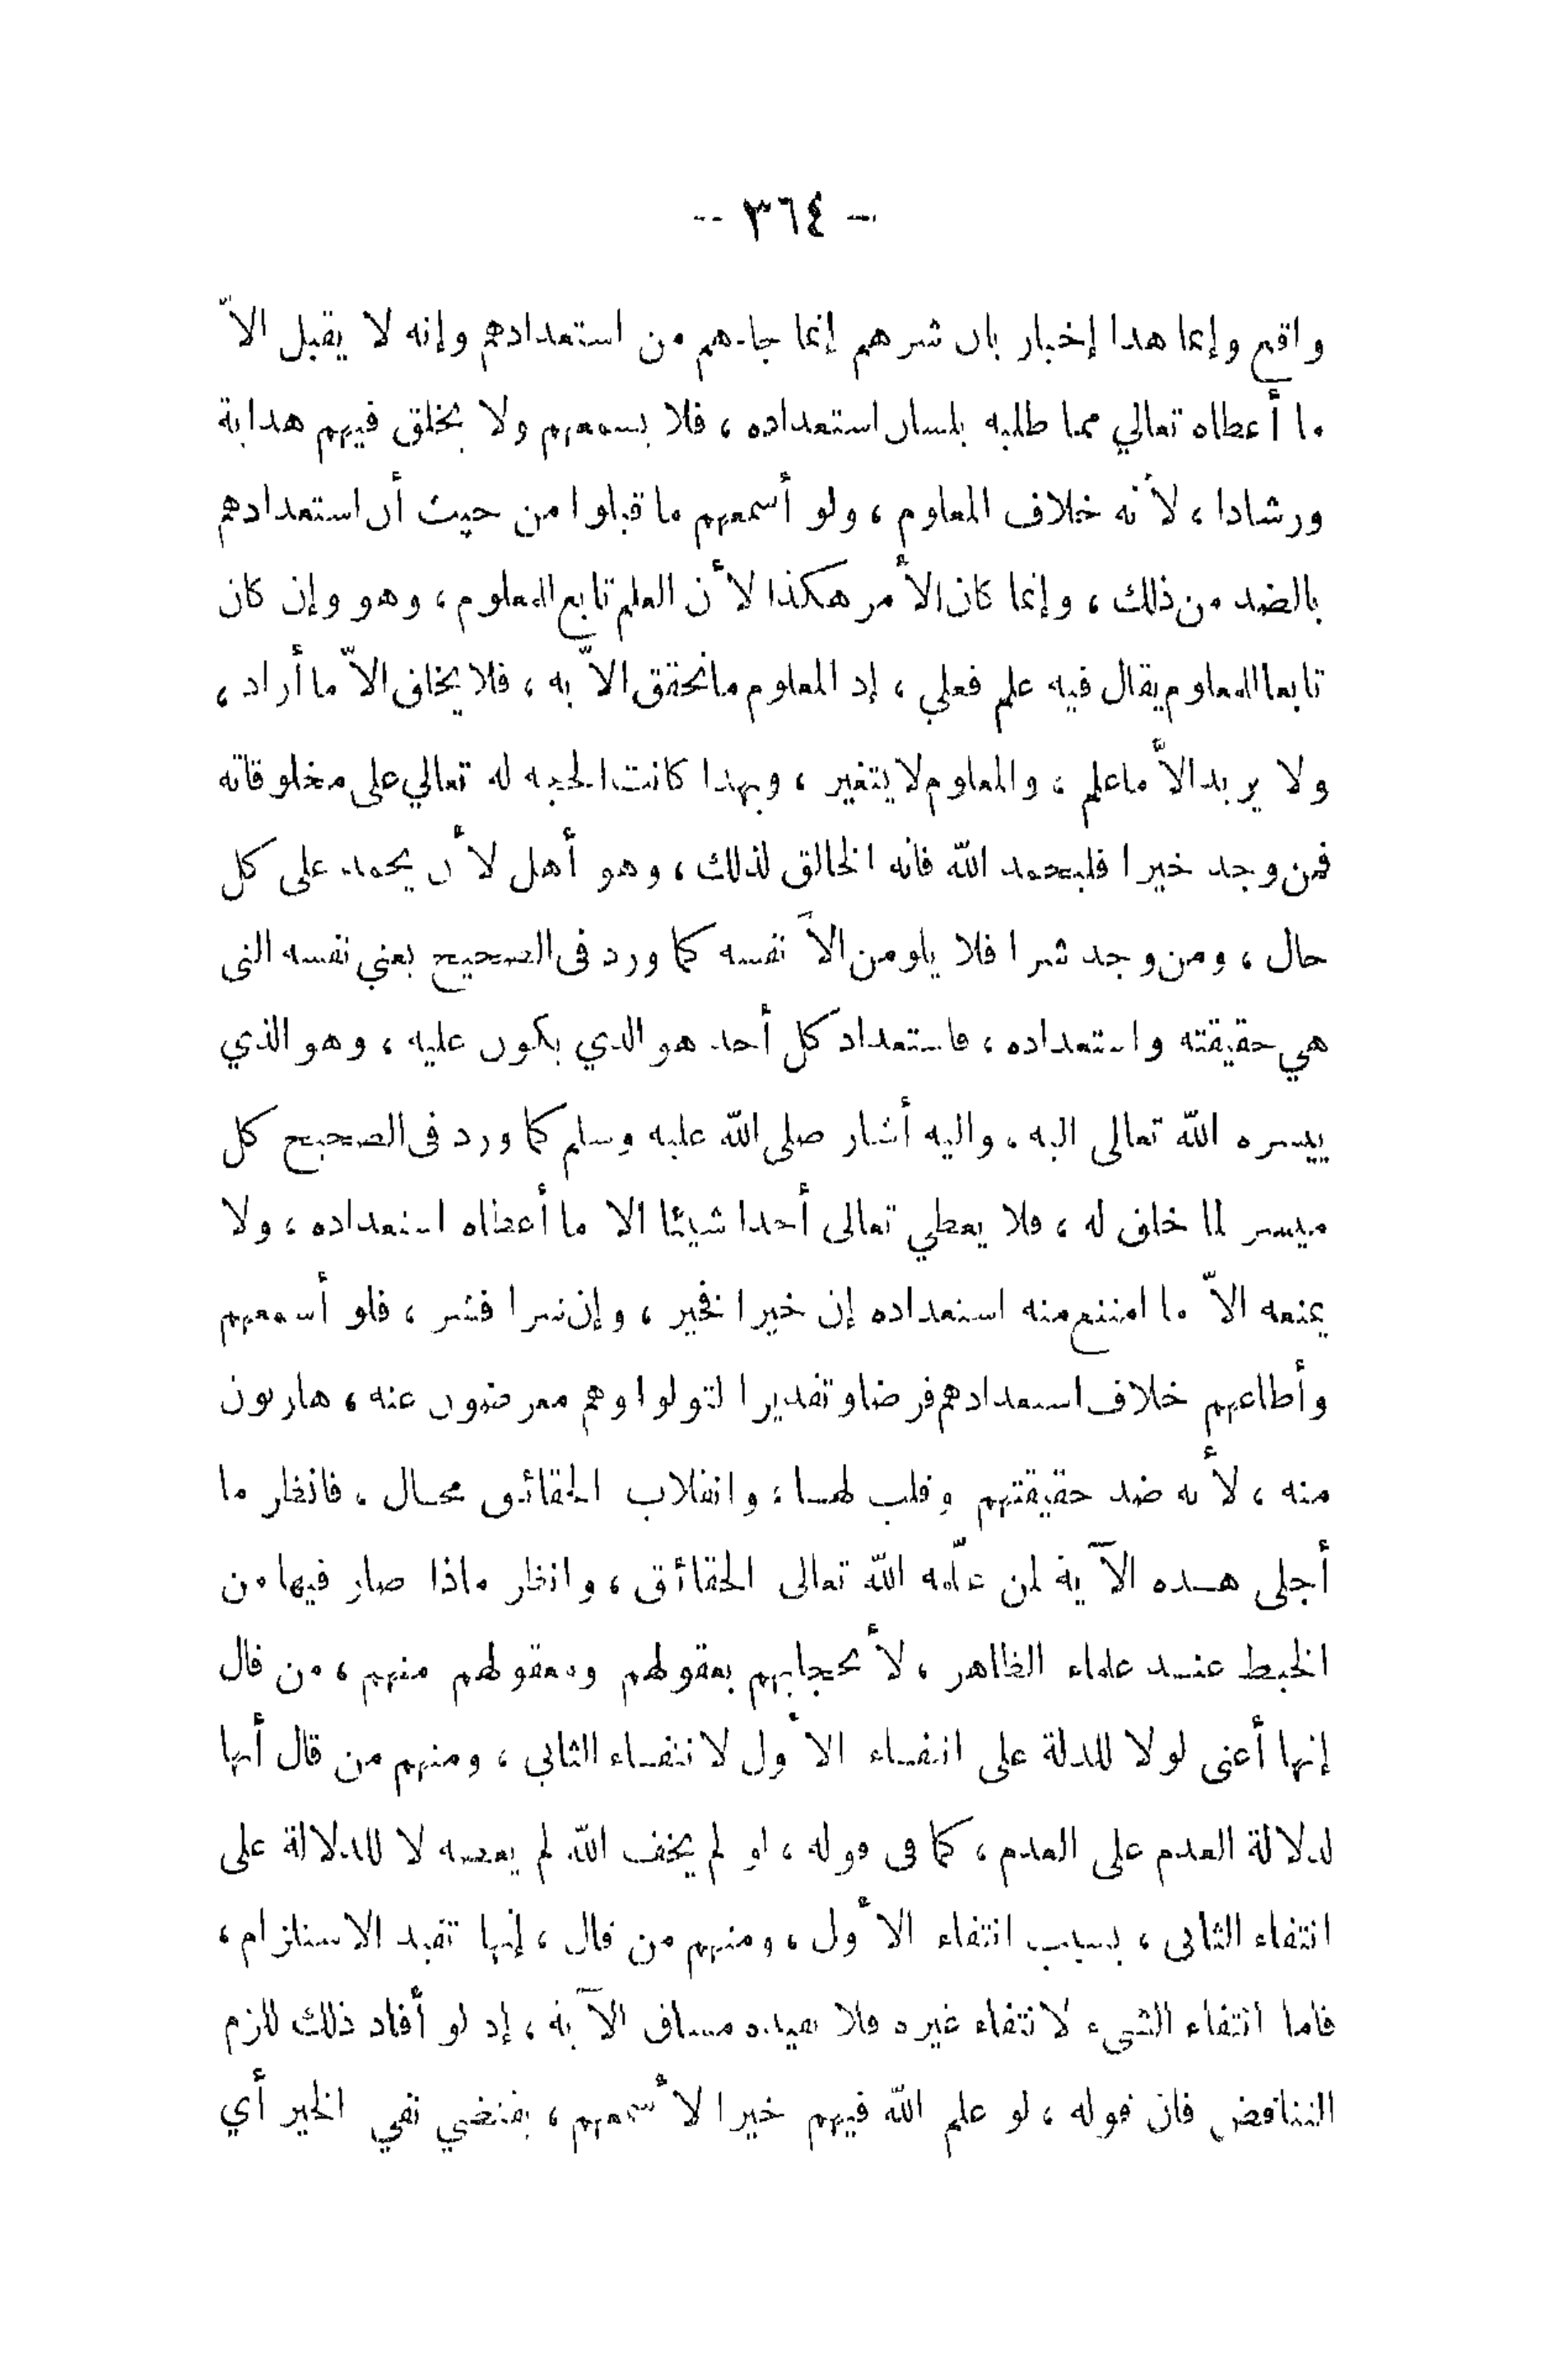 - ٣٦٤ --
واقع وإنما هذا إخبار بان شرهم إنما جاءهم من استعدادهم وإنه لا يقبل الاّ
ما أعطاه تعالي مما طلبه بلسان استعداده ، فلا يسمعهم ولا يخلق فيهم هداية
ورشادا ، لأنه خلاف المعلوم ، ولو أسمعهم ما قبلوا من حيث أن استعدادهم
بالضد من ذلك ، وإنما كان الأمر هكذا لأن العلم تابع للمعلوم ، وهو وإن كان
تابعا للمعلوم يقال فيه علم فعلي ، إذ المعلوم ما تحقق الاّ به ، فلا يخلق الاّ ما أراد ،
ولا يريد الاّ ما علم ، والمعلوم لا يتغير ، وبهذا كانت الحجه له تعالي على مخلوقاته
فمن وجد خيرا فليحمد الله فانه الخالق لذلك ، وهو أهل لأن يحمد على كل
حال ، ومن وجد شرا فلا يلومن الاّ نفسه كما ورد فى الصحيح يعني نفسه التى
هي حقيقته واستعداده ، فاستعداد كل أحد هو الذي يكون عليه ، وهو الذي
ييسره الله تعالى اليه ، واليه أشار صلى الله عليه وسلم كما ورد فى الصحيح كل
ميسر لما خلق له ، فلا يعطي تعالى أحدا شيئا الا ما أعطاه استعداده ، ولا
يمنعه الاّ ما امتنع منه استعداده إن خيرا فخير ، وإن شرا فشر ، فلو أسمعهم
وأطاعهم خلاف استعدادهم فرضا وتقديرا لتولوا وهم معرضون عنه ، هاربون
منه ، لأنه ضد حقيقتهم وقلب لهـا ، وانقلاب الحقائق محـال ، فانظر ما
أجلى هـذه الآية لمن علّمه الله تعالى الحقائق ، وانظر ماذا صار فيها من
الخبط عنـد علماء الظاهر ، لأحجابهم بعقولهم ومعقولهم منهم ، من قال
إنها أعنى لولا للدلة على انتفـاء الأول لانتفـاء الثانى ، ومنهم من قال أنها
لدلالة العدم على العدم ، كما فى قوله ، لو لم يخف الله لم يعصه لا للدلالة على
انتفاء الثانى ، بسبب انتفاء الأول ، ومنهم من قال ، إنها تفيد الاستلزام ،
فاما انتفاء الشىء لانتفاء غيره فلا يفيده مساق الآية ، إذ لو أفاد ذلك للزم
التناقض فان قوله ، لو علم الله فيهم خيرا لأسمعهم ، يقتضي نفي الخير أي